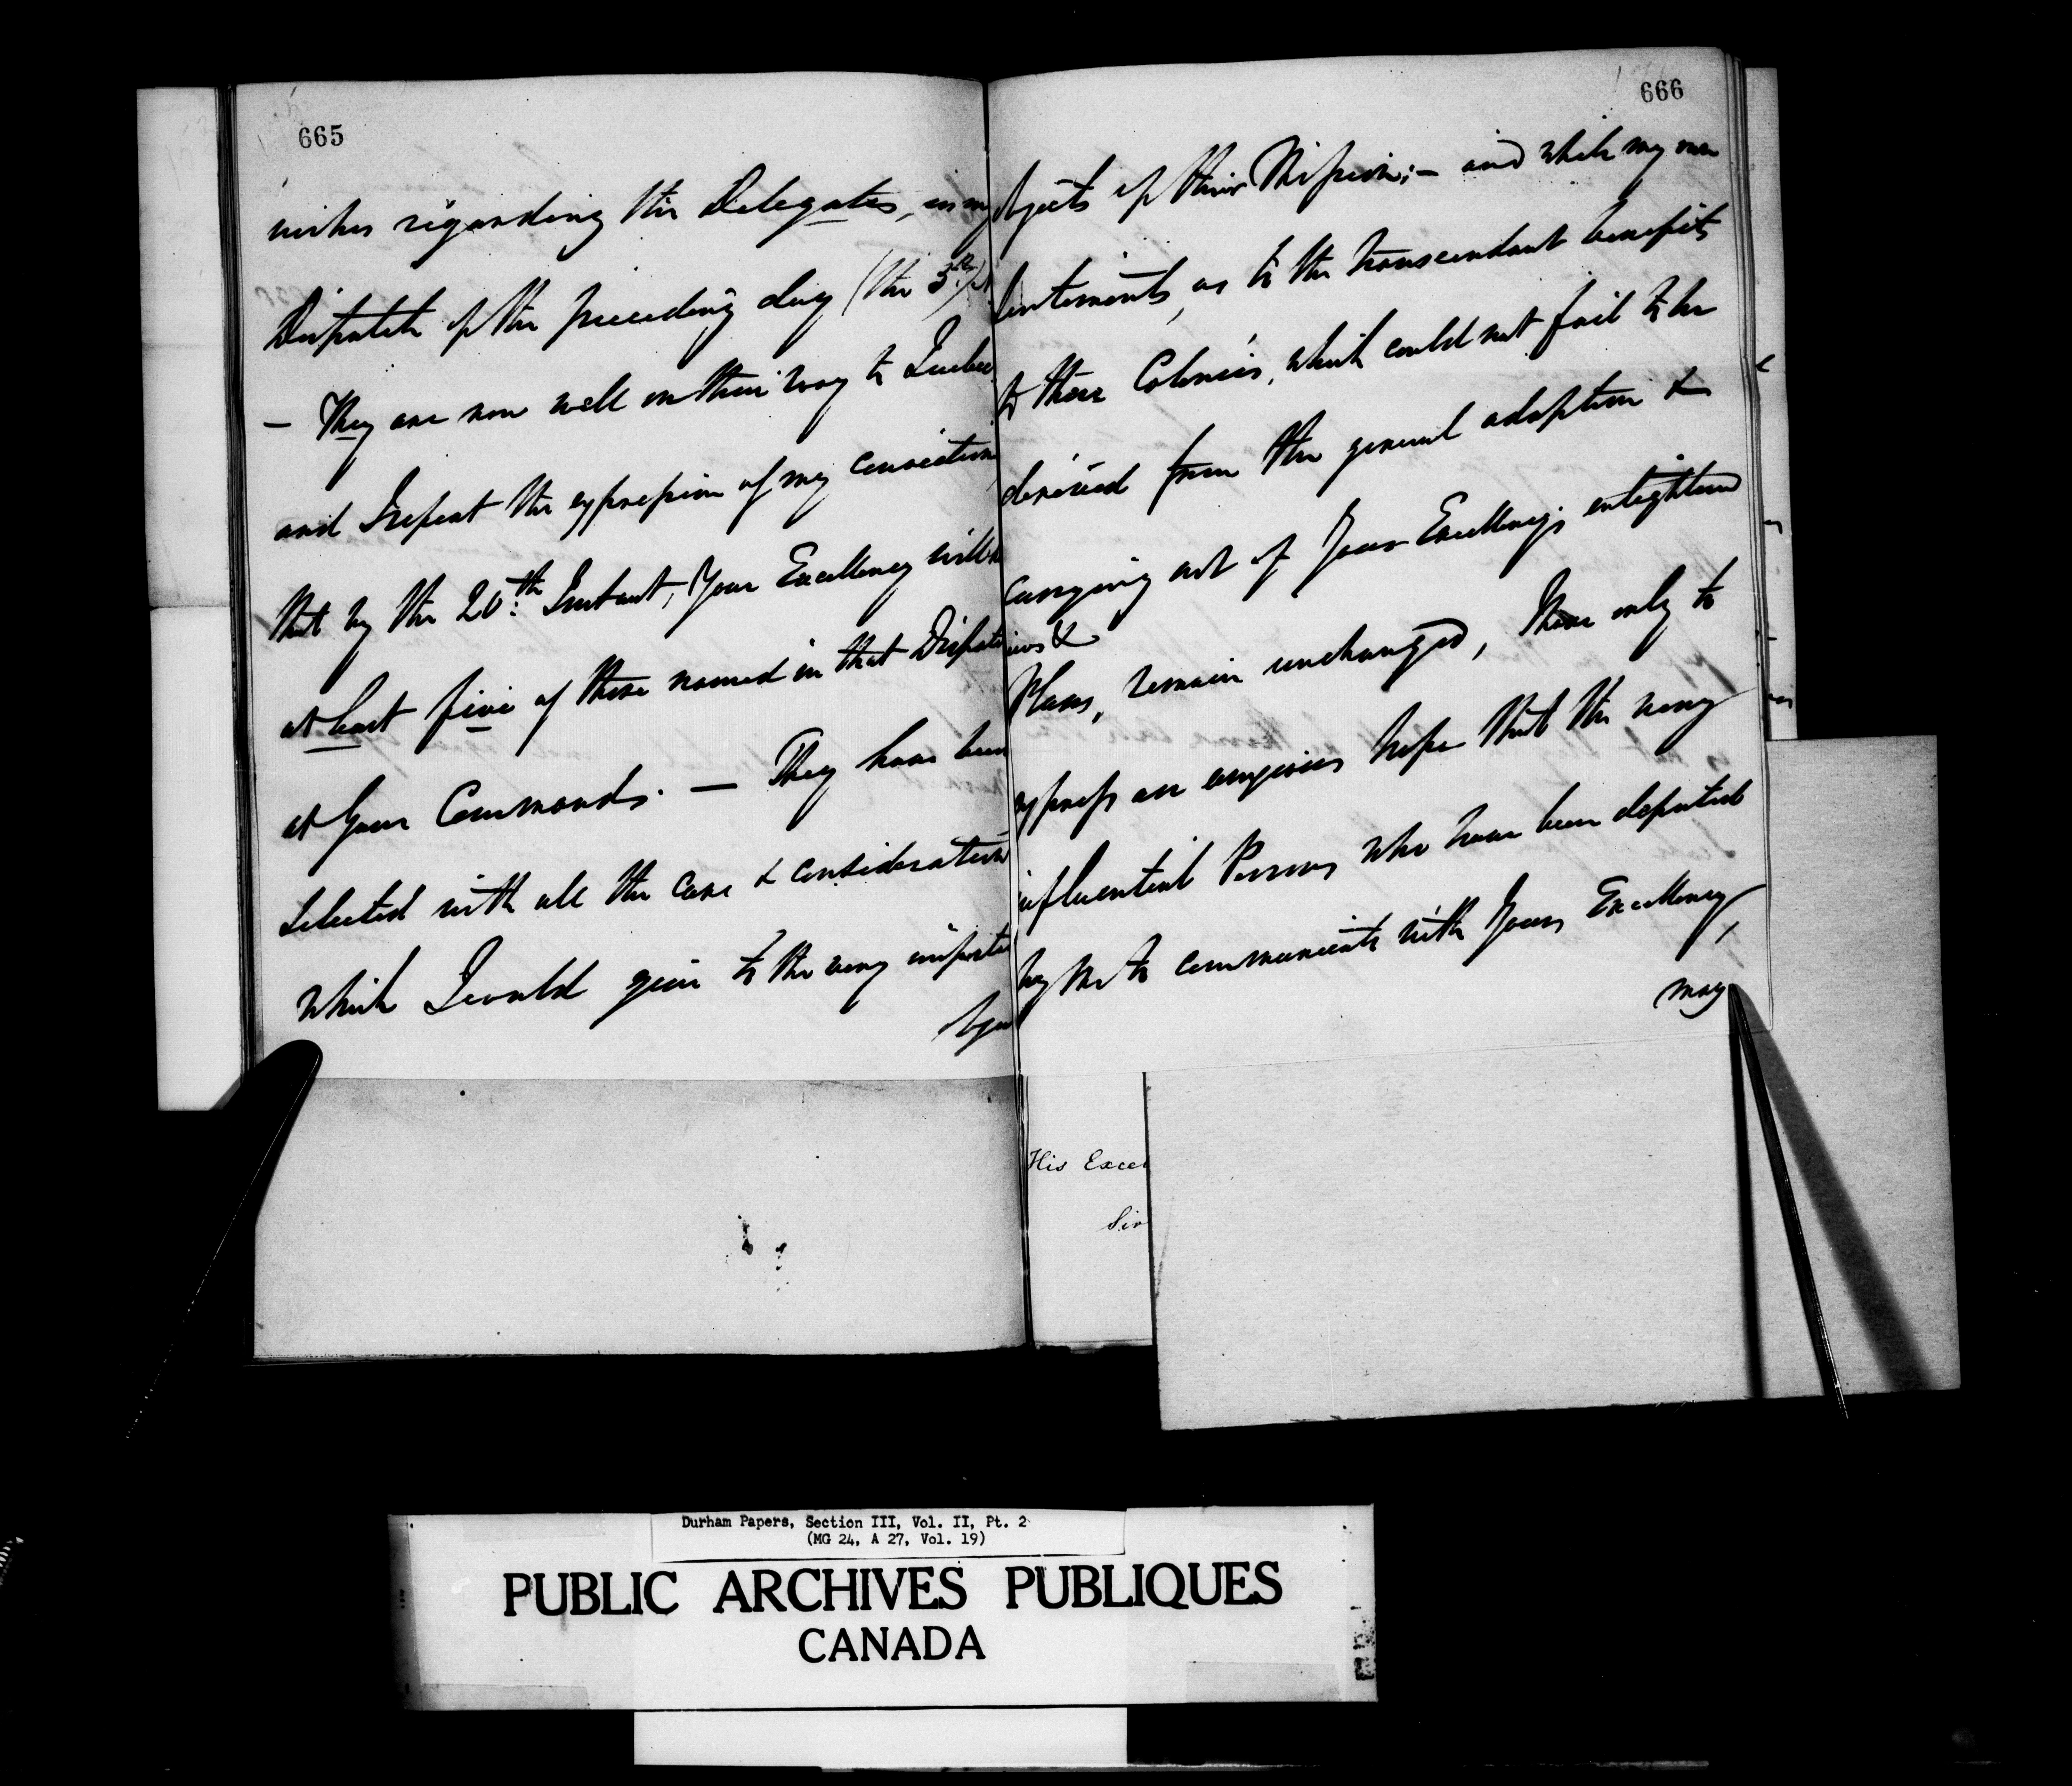 665
wishes regarding the Delegates, in my
Dispatch of the preceding day (the 3d.)
— They are now well on their way to Quebec
and I repeat the expression of my conviction
that by the 20th. Instant, Your Excellency will
at least five of those named in that Dispatch
at Your Commands. — They have been
selected with all the care & consideration
which I could give to the very important
objects
666
objects of their Mission; — and while my own
Sentiments, as to the transcendant benefits
to these Colonies, which could not fail to be
derived from the general adoption &
carrying out of Your Excellency's enlightened
views &
Plans, remain unchanged, I have only to
express an anxious hope that the very
influential Persons who have been deputed
by me to communicate with Your Excellency,
may
His Excel
Sir
Durham Papers, Section III, Vol. II, Pt. 2
(MG 24, A 27, Vol. 19)
PUBLIC ARCHIVES PUBLIQUES
CANADA